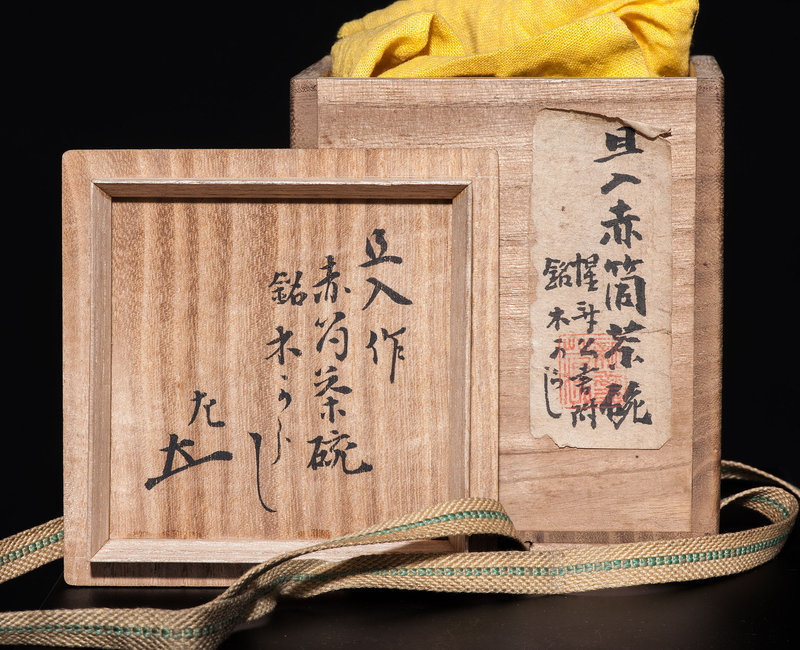 旦入作
赤筒茶碗
銘 木からし
左
旦入赤筒茶碗
惺斎公書附
銘 木からし